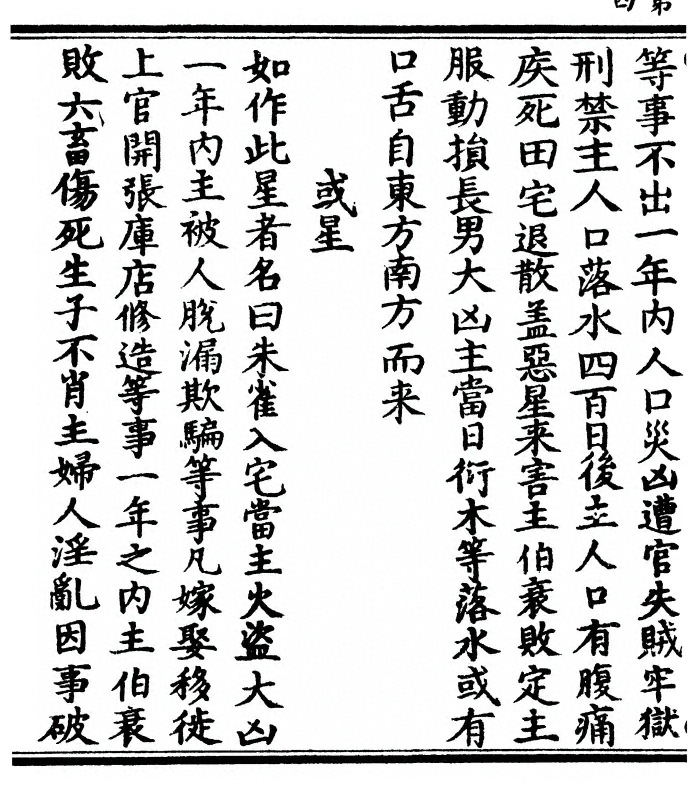 第四
等事不出一年内人口災凶遭官失賊牢獄
刑禁主人口落水四百日後主人口有腹痛
疾死田宅退散盖惡星来害主伯衰敗定主
服動損長男大凶主當日衍木等落水或有
口舌自東方南方而来
或星
如作此星者名曰朱雀入宅當主火盗大凶
一年内主被人脱漏欺騙等事凡嫁娶移徙
上官開張庫店修造等事一年之内主伯衰
敗六畜傷死生子不肖主婦人淫亂因事破